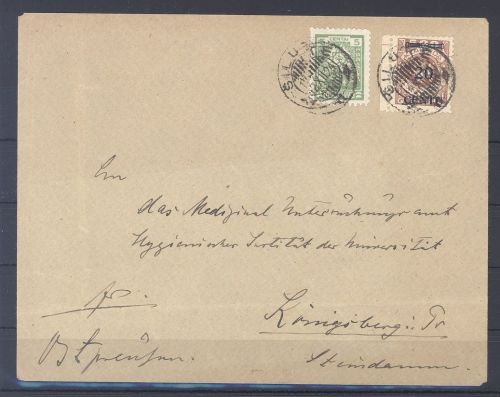 5 CENTAI
ŠILUTĖ
20
CENTŲ
ŠILUTĖ
An
das Medizinal Untersuchungsamt
Hygienischer Institut der Universität
Königsberg i. Pr
Steindamm.
Ostpreußen.